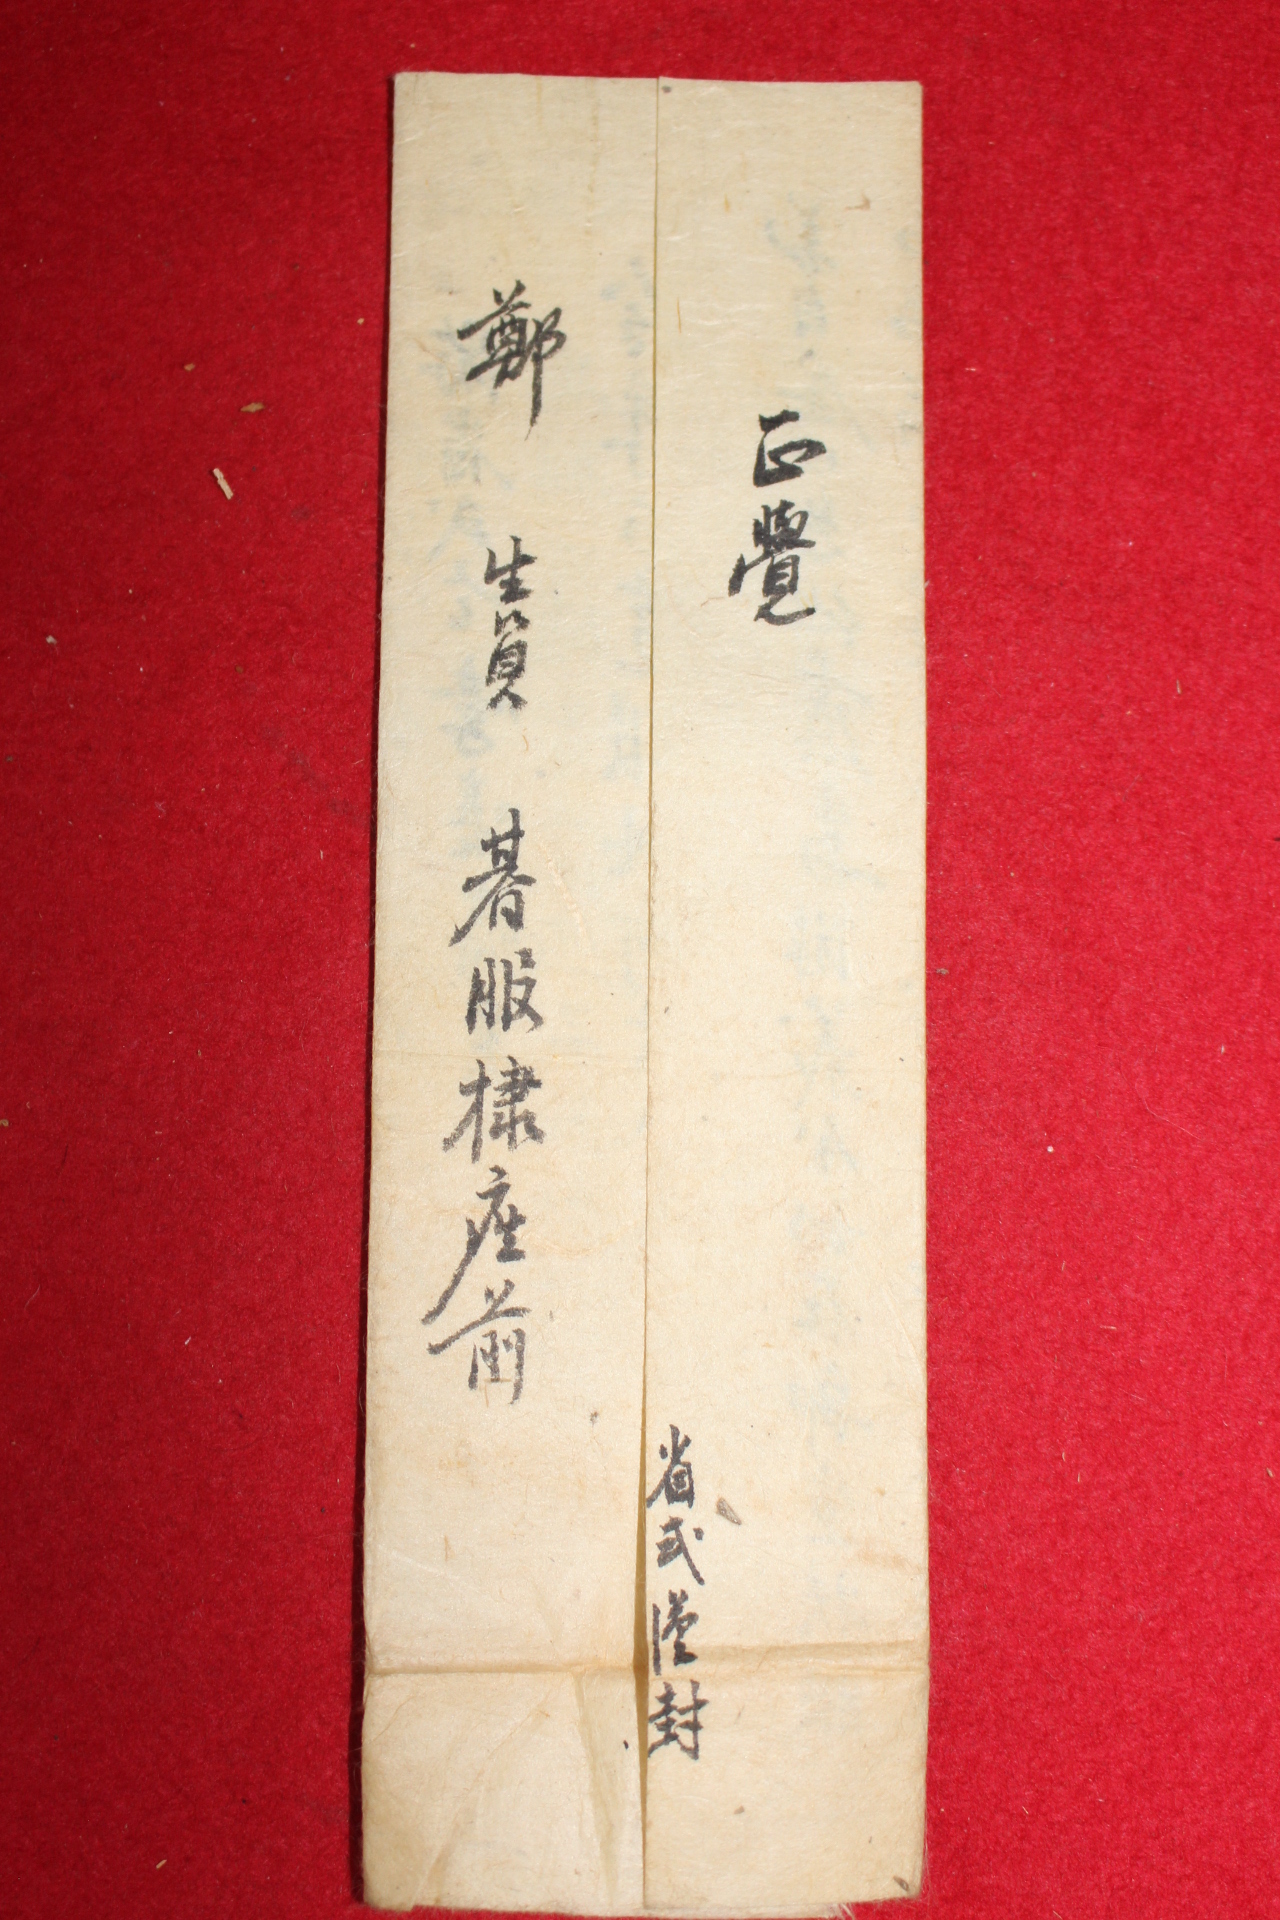 正覺
鄭 生員 朞服棣座前
省式謹封